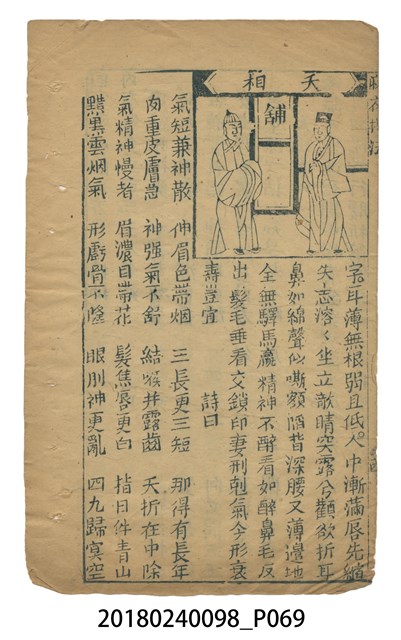 夭相
舖
字耳薄無根弱且低人中漸滿唇先縮
失志溶〻坐立欹睛突露兮顴欲折耳
鼻如綿聲似嘶額陷背深腰又薄邊地
全無驛馬虧精神不醉看如醉鼻毛反
出髮毛垂看交鎖印妻刑剋氣今形衰
壽豈宜
詩曰
氣短兼神散 伸眉色帶烟 三長更三短 那得有長年
肉重皮膚急 神强氣不舒 結喉并露齒 夭折在中除
氣精神慢者 眉濃目帶花 髮焦唇更白 指日伴青山
黯黑雲烟氣 形虧骨不隆 眼刖神更亂 四九歸冥空
20180240098_P069